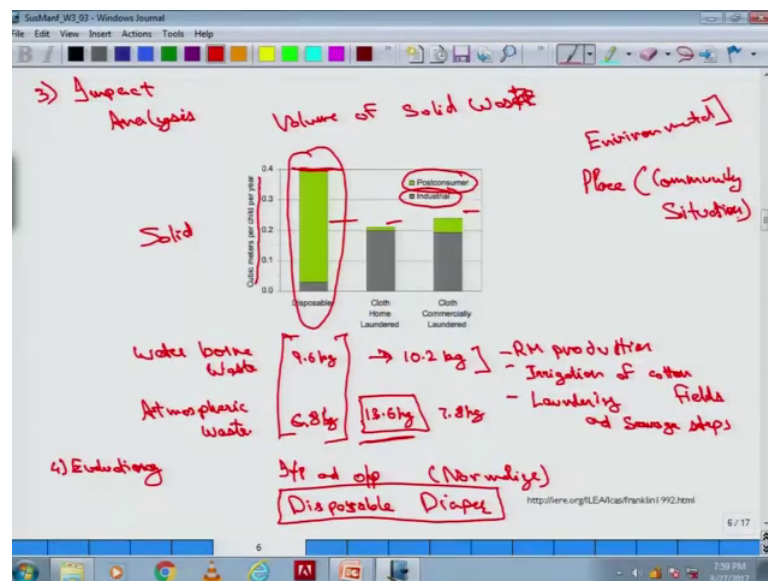 SusManf_W3_03 - Windows Journal
File Edit View Insert Actions Tools Help
B I
3) Impact
Analysis
Volume of Solid Waste
Environmental
Place (Community
Situation)
Solid
Cubic meters per child per year
0.4
0.3
0.2
0.1
0.0
Postconsumer
Industrial
Disposable
Cloth
Home
Laundered
Cloth
Commercially
Laundered
Water borne
Waste
9.6 kg → 10.2 kg
- RM production
- Irrigation of cotton
Fields
- Laundering
ad Sewage steps
Atmospheric
Waste
6.8 kg 13.6 kg 7.8 kg
4)
I/p ad o/p (Normalize)
Disposable Diaper
http://iere.org/ILEA/lcas/franklin1992.html
6 / 17
6
7:59 PM
8/27/2017